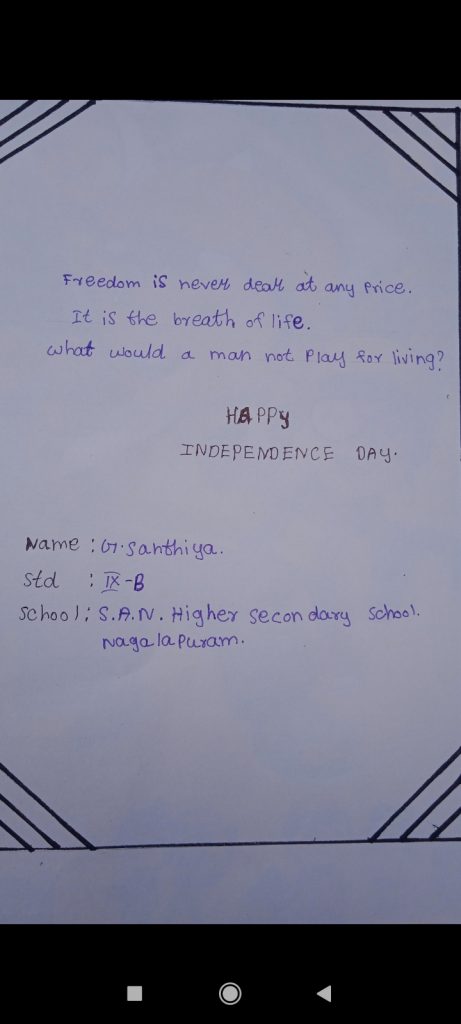 Freedom is never dear at any price.
It is the breath of life.
what would a man not Play for living?
HAPPY
INDEPENDENCE DAY.
Name : G. Santhiya.
Std : IX-B
School : S.A.N. Higher Secondary School.
Nagalapuram.